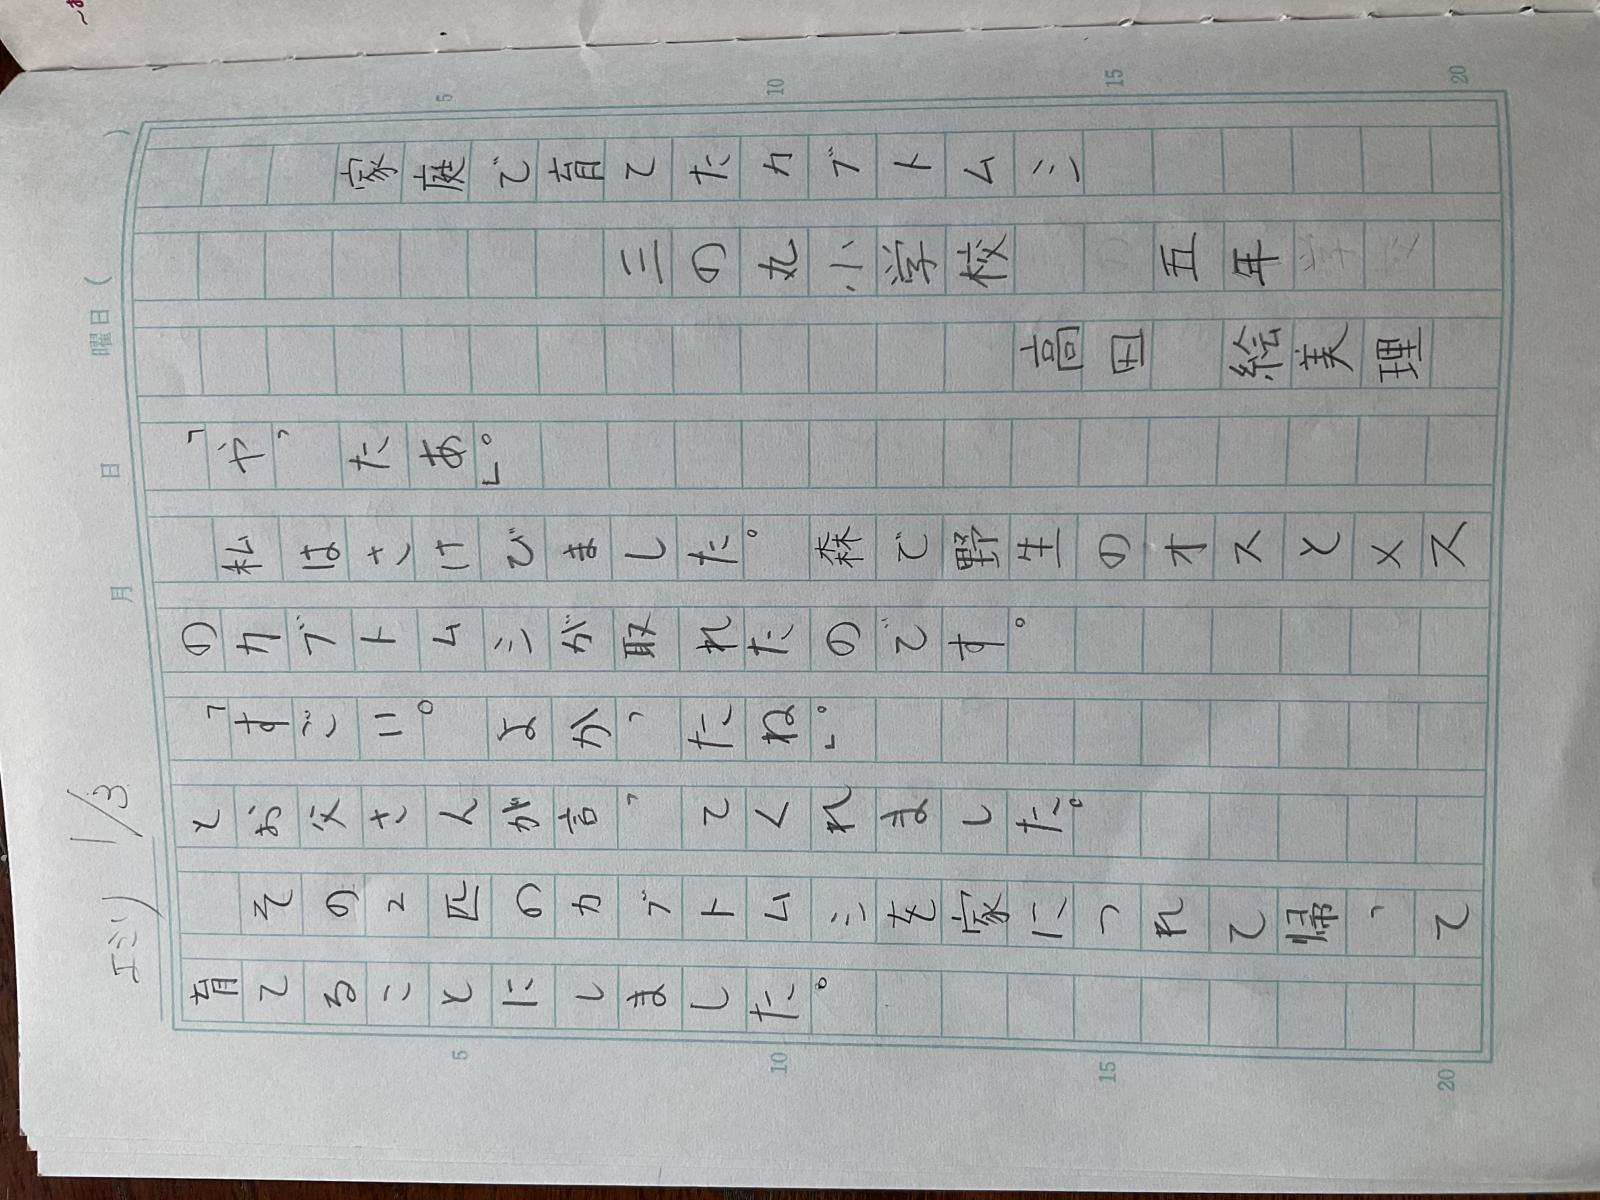 家庭で育てたカブトムシ
三の丸小学校 五年
高田 絵美理
「やったあ」。
私はさけびました。森で野生のオスとメス
のカブトムシが取れたのです。
「すごい。よかったね」。
とお父さんが言ってくれました。
その2匹のカブトムシを家につれて帰って
育てることにしました。
エミリ 1/3
月 日 曜日( )
5 10 15 20
5 10 15 20